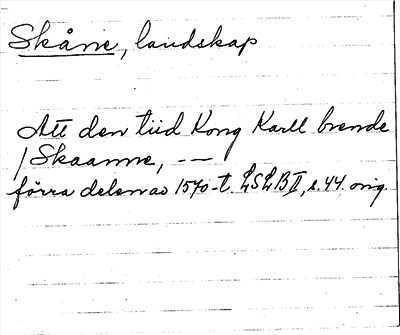 Skåne, landskap
Att den tiid Kong Karll brende
/ Skaanne, --
förra delen av 1570-t. LSLB II, s. 44. orig.